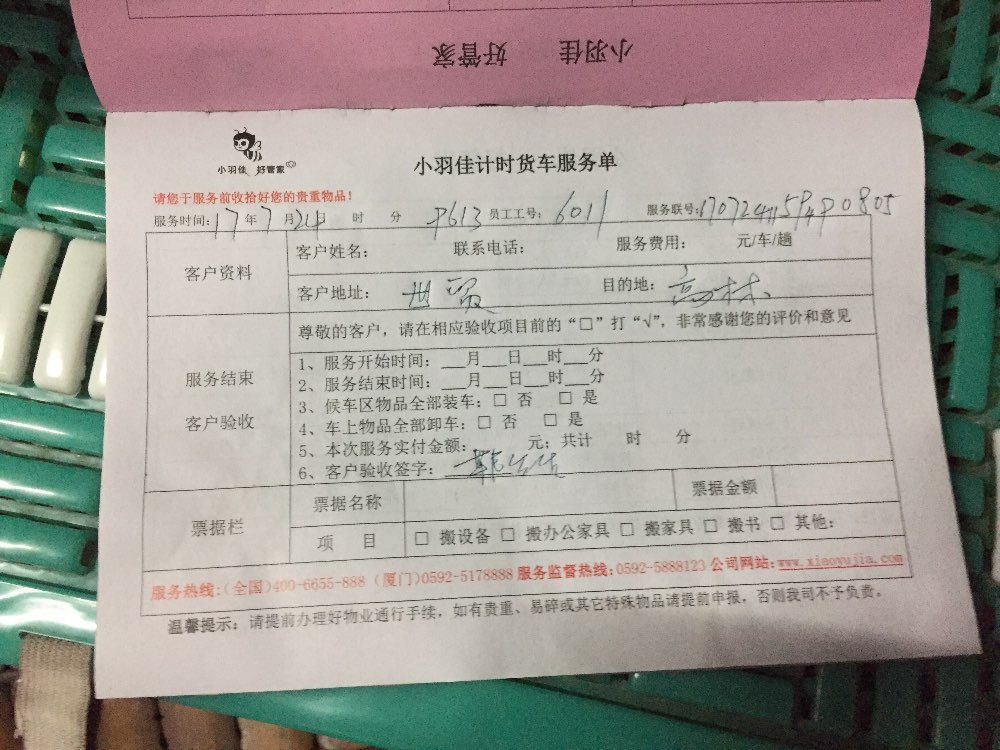 小羽佳 好管家
小羽佳 好管家
小羽佳计时货车服务单
请您于服务前收拾好您的贵重物品！
服务时间：17年7月24日 时 分 P613 员工工号：6011 服务联号：
客户资料 客户姓名： 联系电话： 服务费用： 元/车/趟
客户地址：世贸 目的地：高林
尊敬的客户，请在相应验收项目前的“□”打“√”，非常感谢您的评价和意见
服务结束
客户验收
1、服务开始时间：___月___日___时___分
2、服务结束时间：___月___日___时___分
3、候车区物品全部装车：□ 否 □ 是
4、车上物品全部卸车：□ 否 □ 是
5、本次服务实付金额： 元；共计 时 分
6、客户验收签字：
票据栏 票据名称 票据金额
项 目 □ 搬设备 □ 搬办公家具 □ 搬家具 □ 搬书 □ 其他：
服务热线：（全国）400-6655-888（厦门）0592-5178888 服务监督热线：0592-5888123 公司网站：www.xiaoyujia.com
温馨提示：请提前办理好物业通行手续，如有贵重、易碎或其它特殊物品请提前申报，否则我司不予负责。